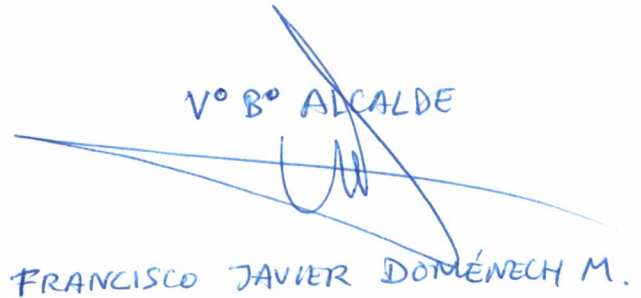 Vº Bº ALCALDE
FRANCISCO JAVIER DOMÉNECH M.